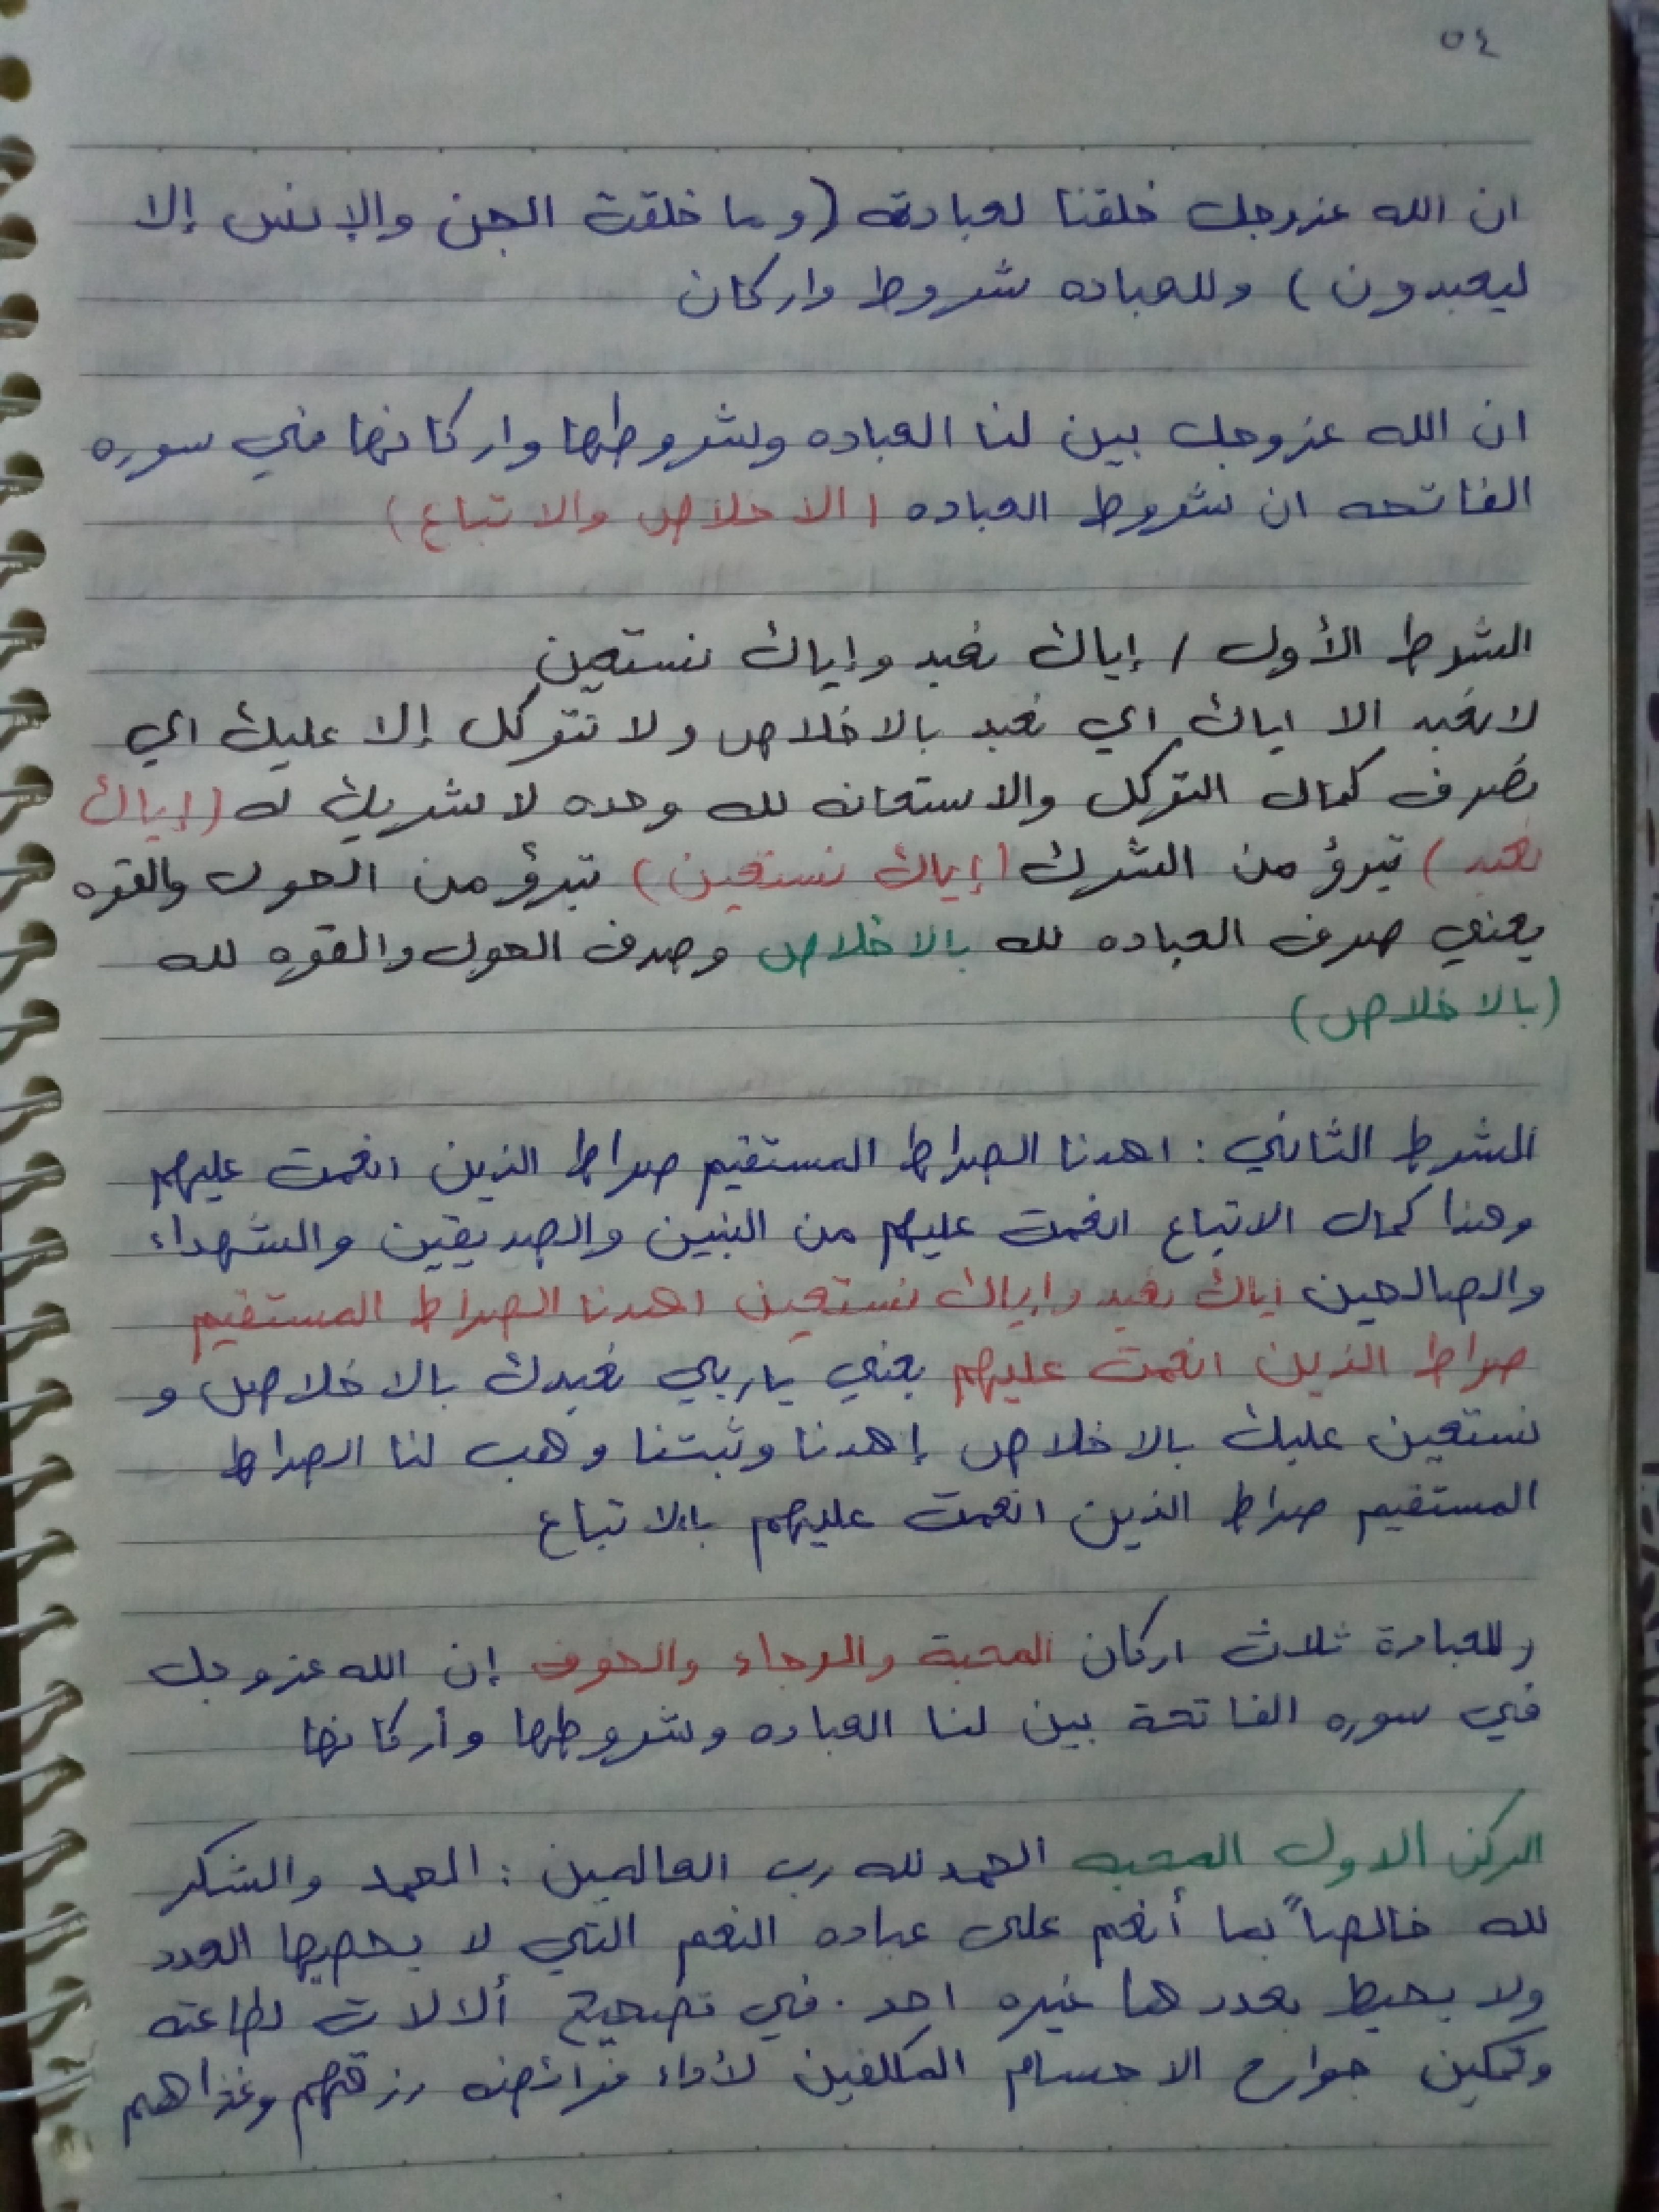 ٥٤
ان الله عزوجل خلقنا لعبادته (وما خلقت الجن والإنس إلا
ليعبدون) وللعباده شروط واركان
ان الله عزوجل بين لنا العباده وشروطها واركانها في سوره
الفاتحه ان شروط العباده (الاخلاص والاتباع)
الشرط الأول / إياك نعبد وإياك نستعين
لانعبد الا اياك اي نعبد بالاخلاص ولا نتوكل إلا عليك اي
نصرف كمال التوكل والاستعانه لله وحده لا شريك له (إياك
نعبد) تبرؤ من الشرك (إياك نستعين) تبرؤ من الحول والقوه
يعني صرف العباده لله بالاخلاص وصرف الحول والقوه لله
(بالاخلاص)
الشرط الثاني : اهدنا الصراط المستقيم صراط الذين انعمت عليهم
وهذا كمال الاتباع انعمت عليهم من النبين والصديقين والشهداء
والصالحين اياك نعبد واياك نستعين اهدنا الصراط المستقيم
صراط الذين انعمت عليهم يعني ياربي نعبدك بالاخلاص و
نستعين عليك بالاخلاص إهدنا وثبتنا وهب لنا الصراط
المستقيم صراط الذين انعمت عليهم بالاتباع
وللعبادة ثلاث اركان المحبة والرجاء والخوف إن الله عزوجل
في سوره الفاتحة بين لنا العباده وشروطها وأركانها
الركن الاول المحبه الحمدلله رب العالمين : الحمد والشكر
لله خالصاً بما أنعم على عباده النعم التي لا يحصيها العدد
ولا يحيط بعددها غيره احد . في تصحيح ألالات لطاعته
وتمكين جوارح الاجسام المكلفين لأداء فرائضه رزقهم وغذاهم